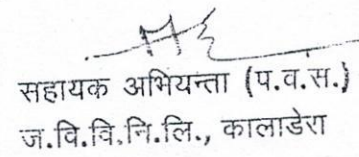 सहायक अभियन्ता (प.व.स.)
ज.वि.वि.नि.लि., कालाडेरा